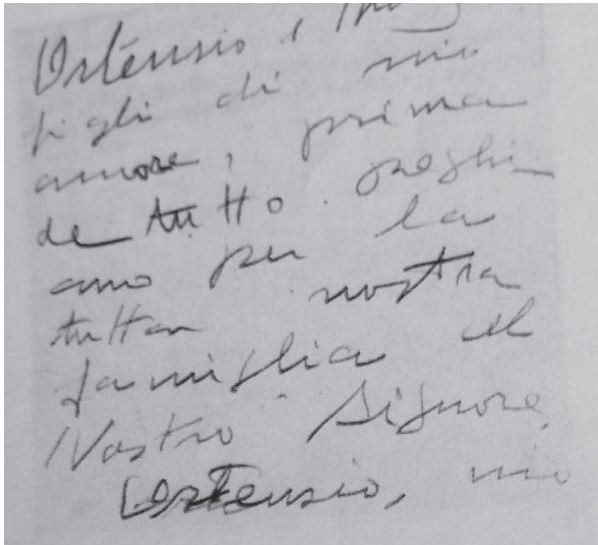 Ortensio,
figli di mio
amore, prima
de tutto. preghi
amo per la
tutta nostra
famiglia al
Nostro Signore,
Ortensio, mio